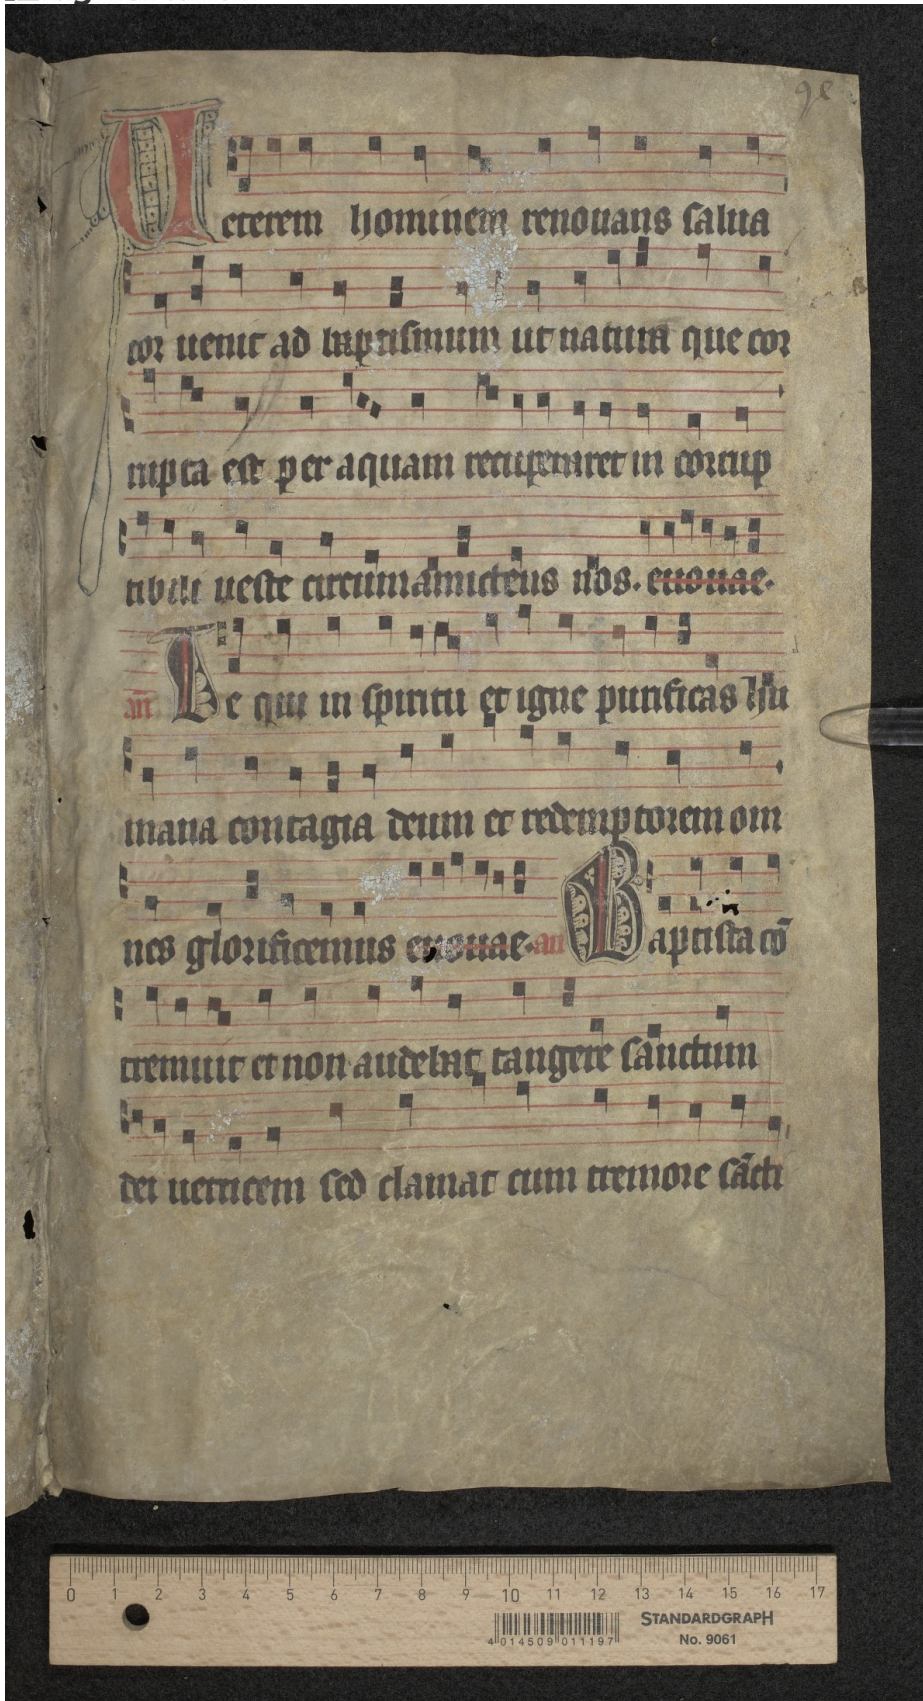 Ueterem hominem renouans salua
tor uenit ad baptismum ut natura que cor
rupta est per aquam recuperaret in corrup
tibili ueste circumamictens nos. euouae.
an Te qui in spiritu et igne purificas hu
mana contagia deum et redemptorem om
nes glorificemus euouae. an Baptista cō
tremuit et non audebat tangere sanctum
dei uerticem sed clamat cum tremore sācti
0 1 2 3 4 5 6 7 8 9 10 11 12 13 14 15 16 17
STANDARDGRAPH
No. 9061
4 014509 011197